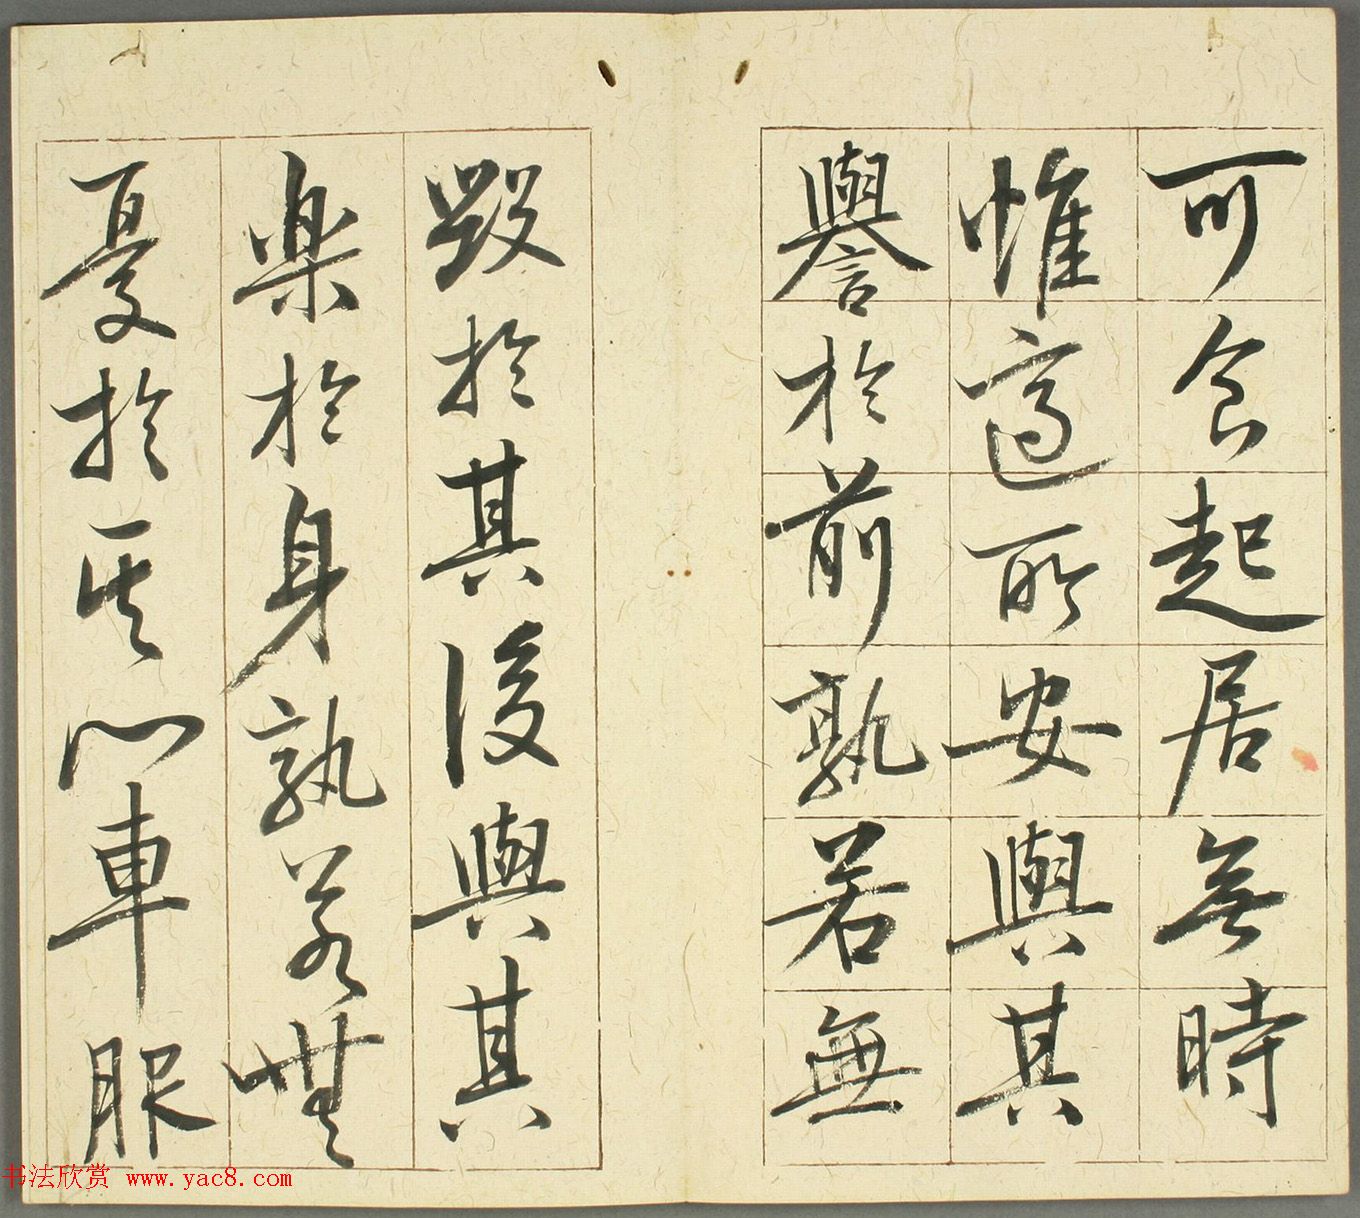 可食起居無時
惟適所安與其
譽於前孰若無
毀於其後與其
樂於身孰若無
憂於其心車服
书法欣赏 www.yac8.com